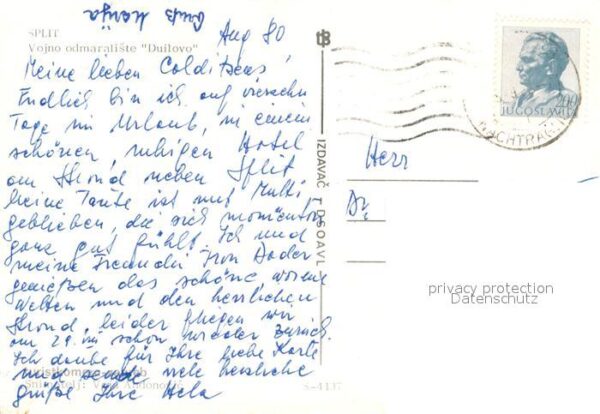 Gruß Marija
Aug 80
SPLIT
Vojno odmaralište "Duilovo"
Meine lieben
Endlich bin ich auf vierzehn
Tage im Urlaub, in einem
schönen, ruhigen Hotel
am Strand neben Split
Meine Tante ist mit Mutti
geblieben, die sich momentan
ganz gut fühlt. Ich und
meine Freundin Frau
genießen das schöne warme
Wetter und den herrlichen
Strand, leider fliegen wir
am 29. schon wieder zurück.
Ich danke für Ihre liebe Karte
und sende viele herzliche
Grüße Ihre Hela
IZDAVAČ
200
JUGOSLAVIJA
NACHTRÄG
Herr
Dr.
privacy protection
Datenschutz